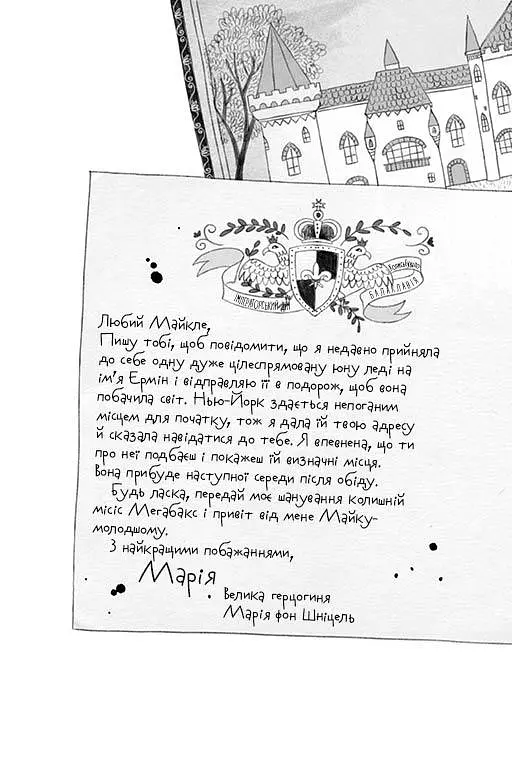 ІМПЕРАТОРСЬКИЙ
БАЛАКЛАВІЯ
Любий Майкле,
Пишу тобі, щоб повідомити, що я недавно прийняла
до себе одну дуже цілеспрямовану юну леді на
ім'я Ермін і відправляю її в подорож, щоб вона
побачила світ. Нью-Йорк здається непоганим
місцем для початку, тож я дала їй твою адресу
й сказала навідатися до тебе. Я впевнена, що ти
про неї подбаєш і покажеш їй визначні місця.
Вона прибуде наступної середи після обіду.
Будь ласка, передай моє шанування колишній
місіс Мегабакс і привіт від мене Майку-
молодшому.
З найкращими побажаннями,
Марія
Велика герцогиня
Марія фон Шніцель